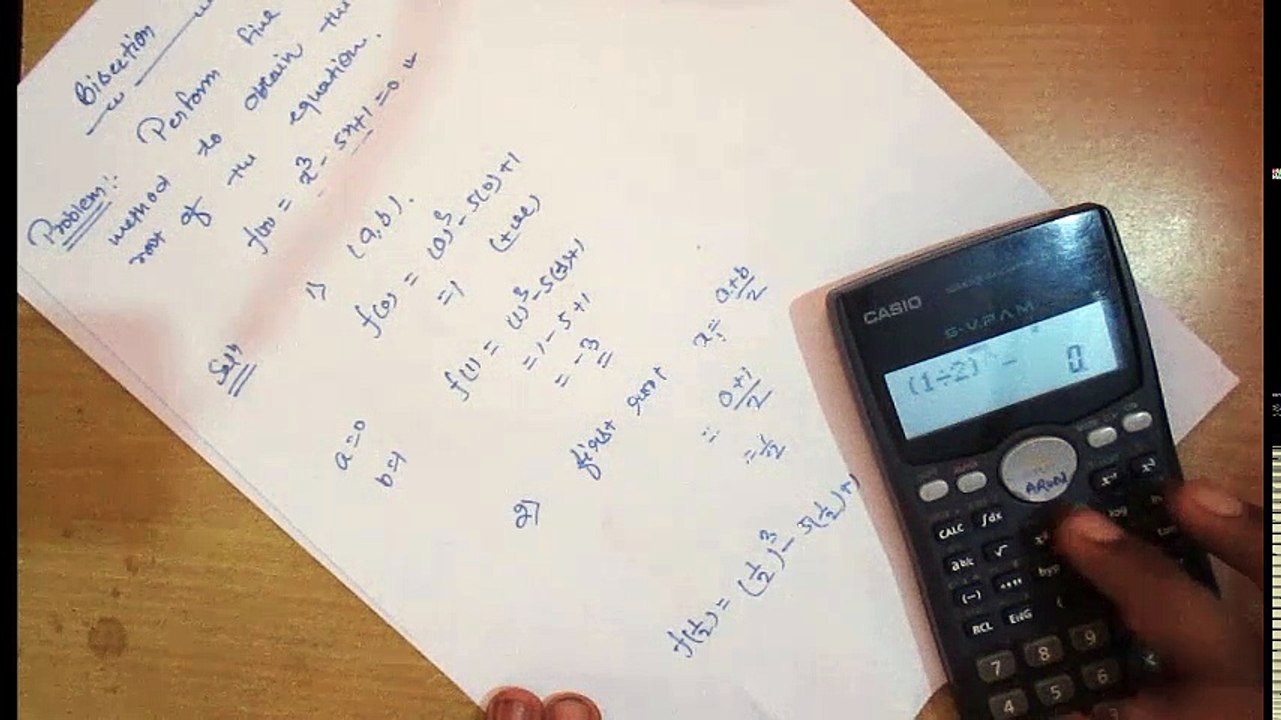 Bisection
Problem:- Perform five
method to obtain the
root of the equation.
f(x) = x³ - 5x+1=0
Soln
1) (a,b).
f(0) = (0)³ - 5(0)+1
=1 (+ve)
f(1) = (1)³-5(1)+1
=1-5+1
= -3
a=0
b=1
2) first root x₁= a+b/2
= 0+1/2
= 1/2
f(1/2) = (1/2)³ - 5(1/2)+1
CASIO
S-V.P.A.M.
(1÷2) -
0.
ARUN
CALC ∫dx
ab/c √ x²
(-) °'"
hyp
log
RCL ENG (
7 8 9
4 5 6